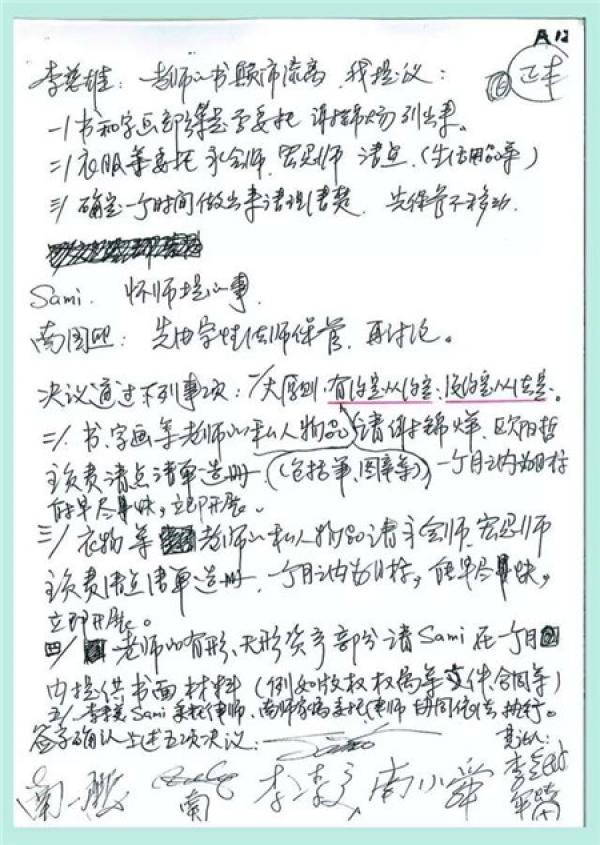 A12
李慈雄：老师的书颠沛流离，我提议：
一/书和字画部分是否委托谢锦烊列出来。
二/衣服等委托永会师、宏忍师清点（生活用品等）
三/确定一个时间做出来清理清楚，先保管不移动.
Sami. 怀师提的事.
南国熙：先由宏忍法师保管，再讨论。
决议通过下列事项：一/大原则，有约定从约定，没约定从法定。
二/书、字画等老师的私人物品请谢锦烊、欧阳哲
主负责清点清单造册.(包括笔、图章等)一个月之内为目标
能早尽早快，立即开展。
三/衣物等老师的私人物品请永会师、宏忍师
主负责清点清单造册，一个月之内为目标，能早尽早快，
立即开展。
四/老师的有形、无形资产部分请Sami在一个月
内提供书面材料（例如版权权属等文件、合同等）
五/李慈雄 Sami委托律师，南师家属委托律师协同依法执行。
签字确认上述五项决议：
南一鹏 南 南小舜